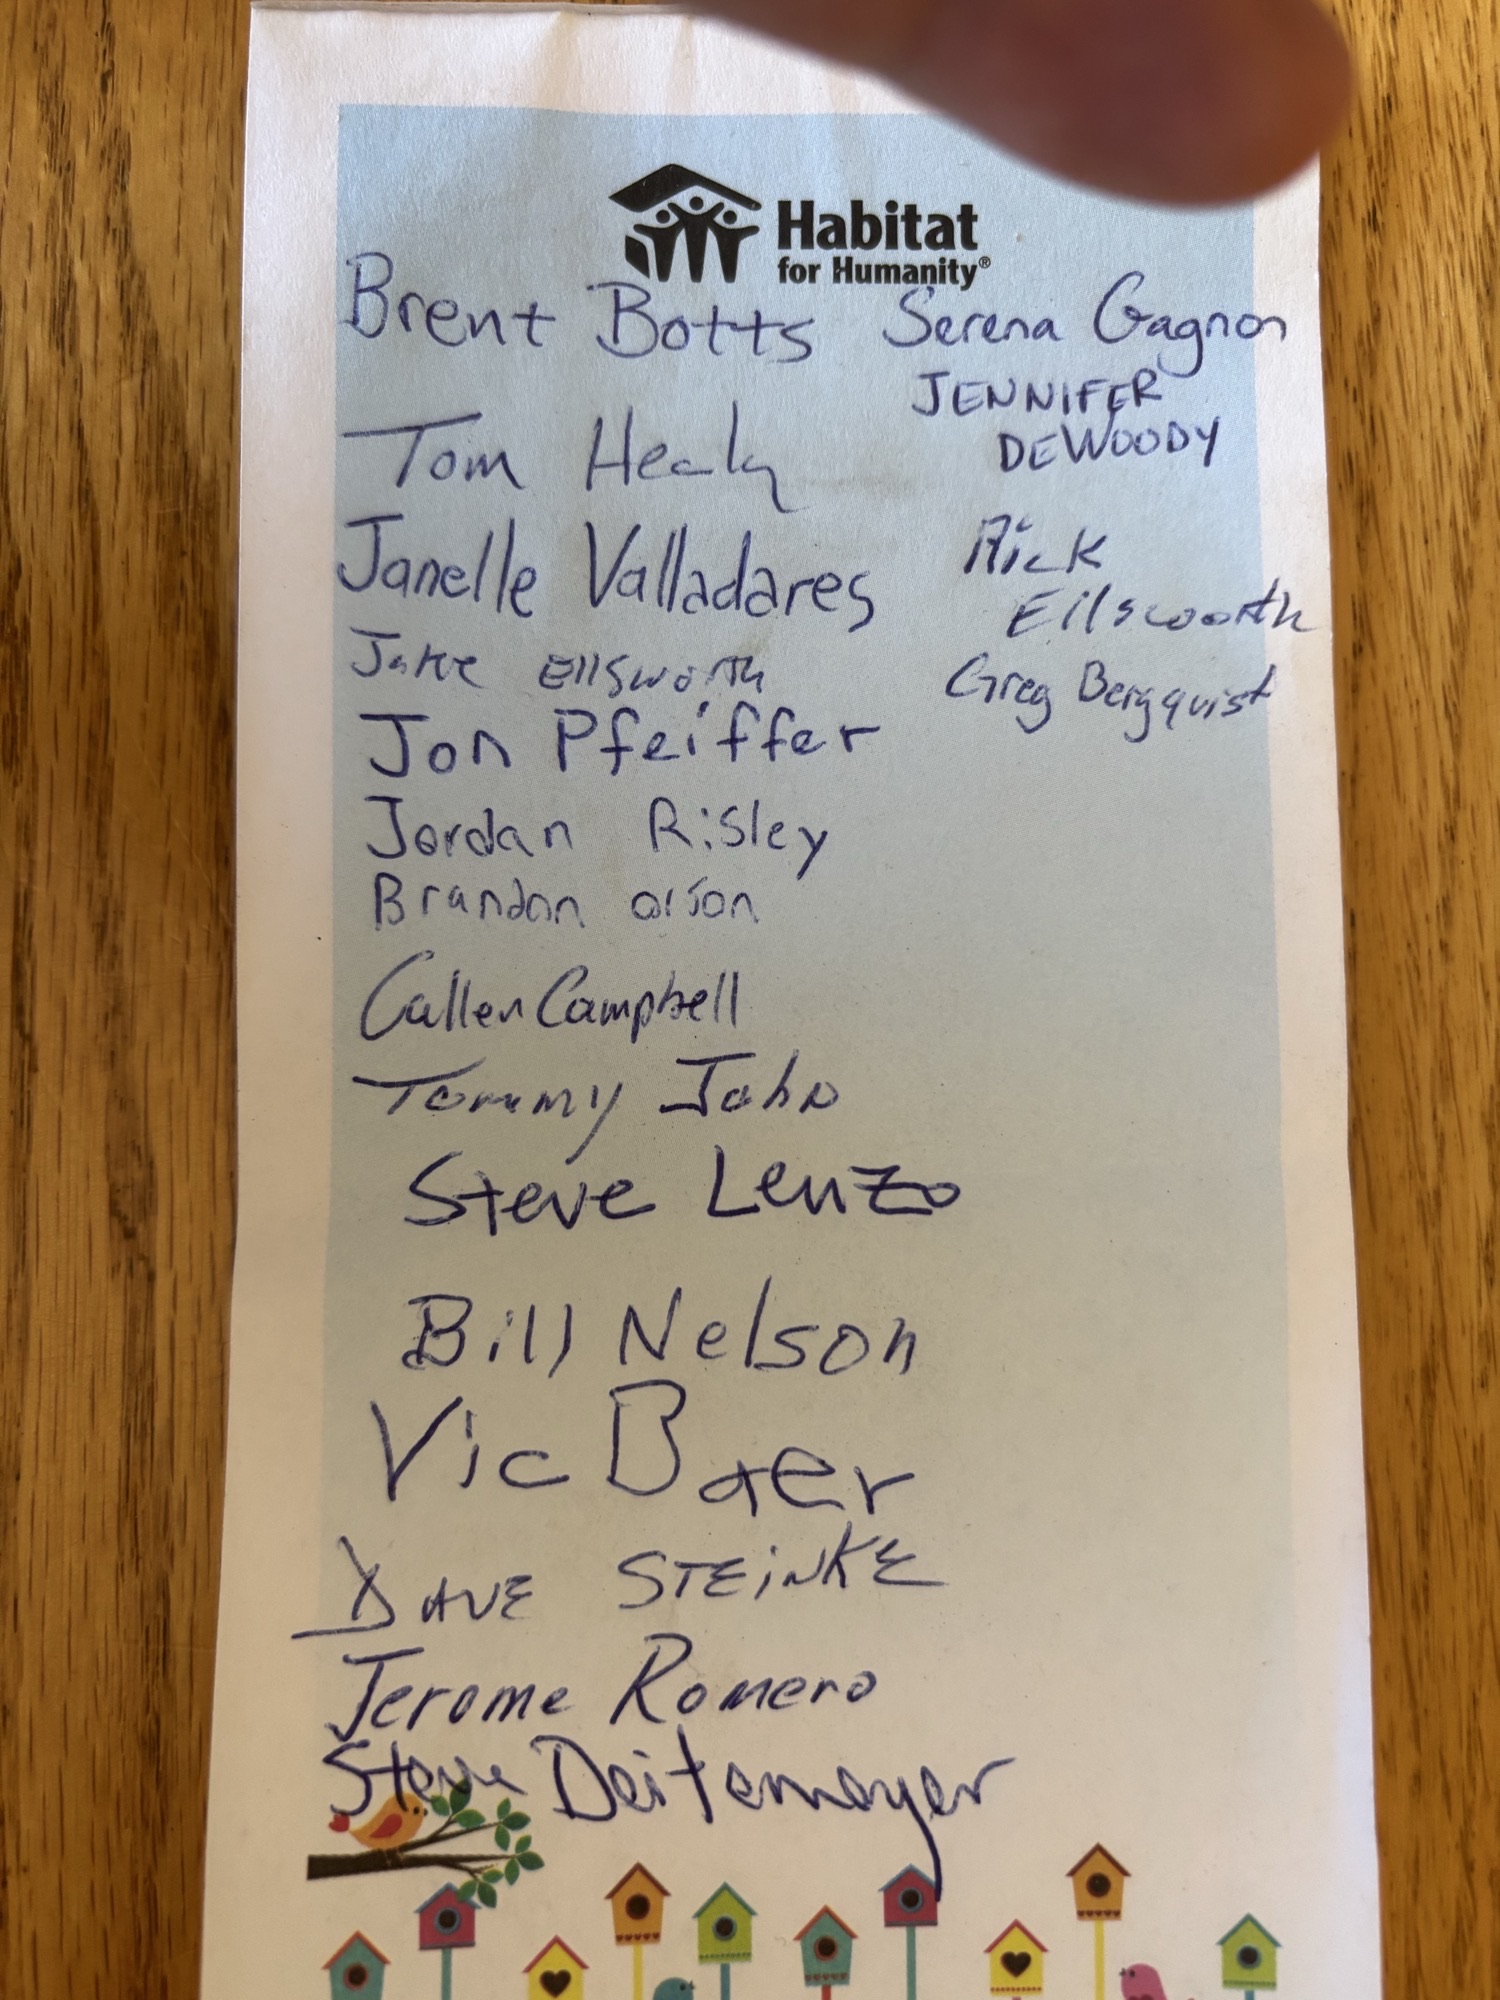 Habitat
for Humanity®
Brent Botts
Tom Healy
Janelle Valladares
Jake Ellsworth
Jon Pfeiffer
Jordan Risley
Brandon Olson
Callen Campbell
Tommy John
Steve Lenzo
Bill Nelson
Vic Baer
DAVE STEINKE
Jerome Romero
Steve Deitemeyer
Serena Gagnon
JENNIFER
DEWOODY
Rick
Ellsworth
Greg Bergquist